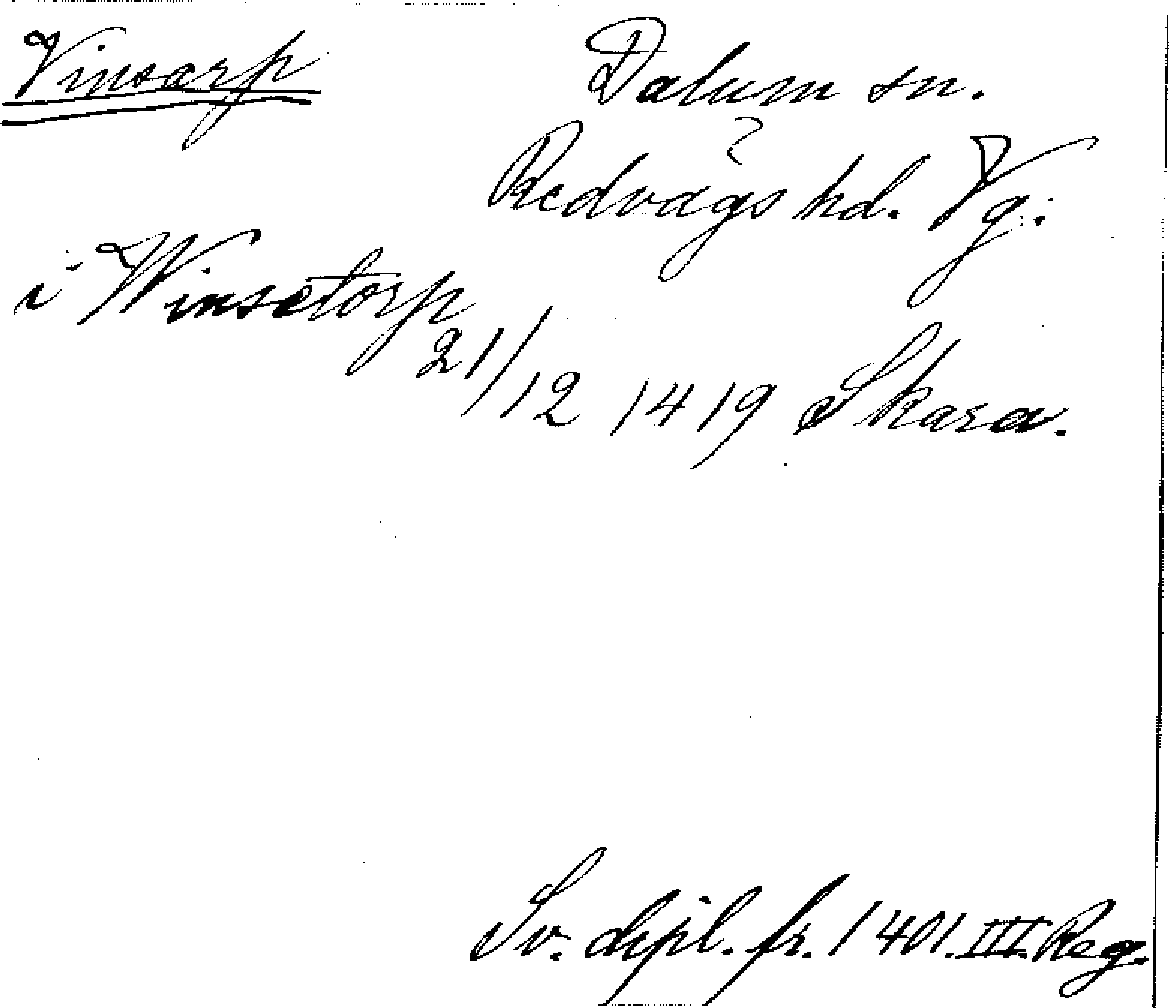 Vinsarp
Dalum sn.
Redvägs hd. Vg.
i Winsetorp
21/12 1419 Skara.
Sv. dipl. fr. 1401. III. Reg.